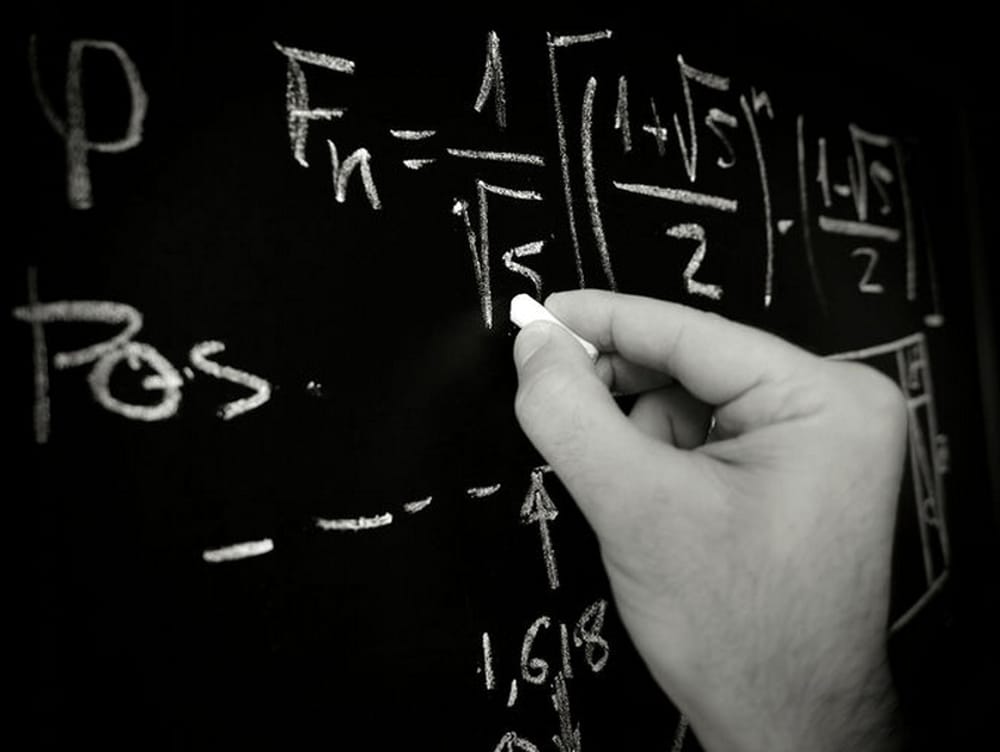 φ
F_n = 1/√5 [((1+√5)/2)^n · ((1-√5)/2)
Pos.
1,618